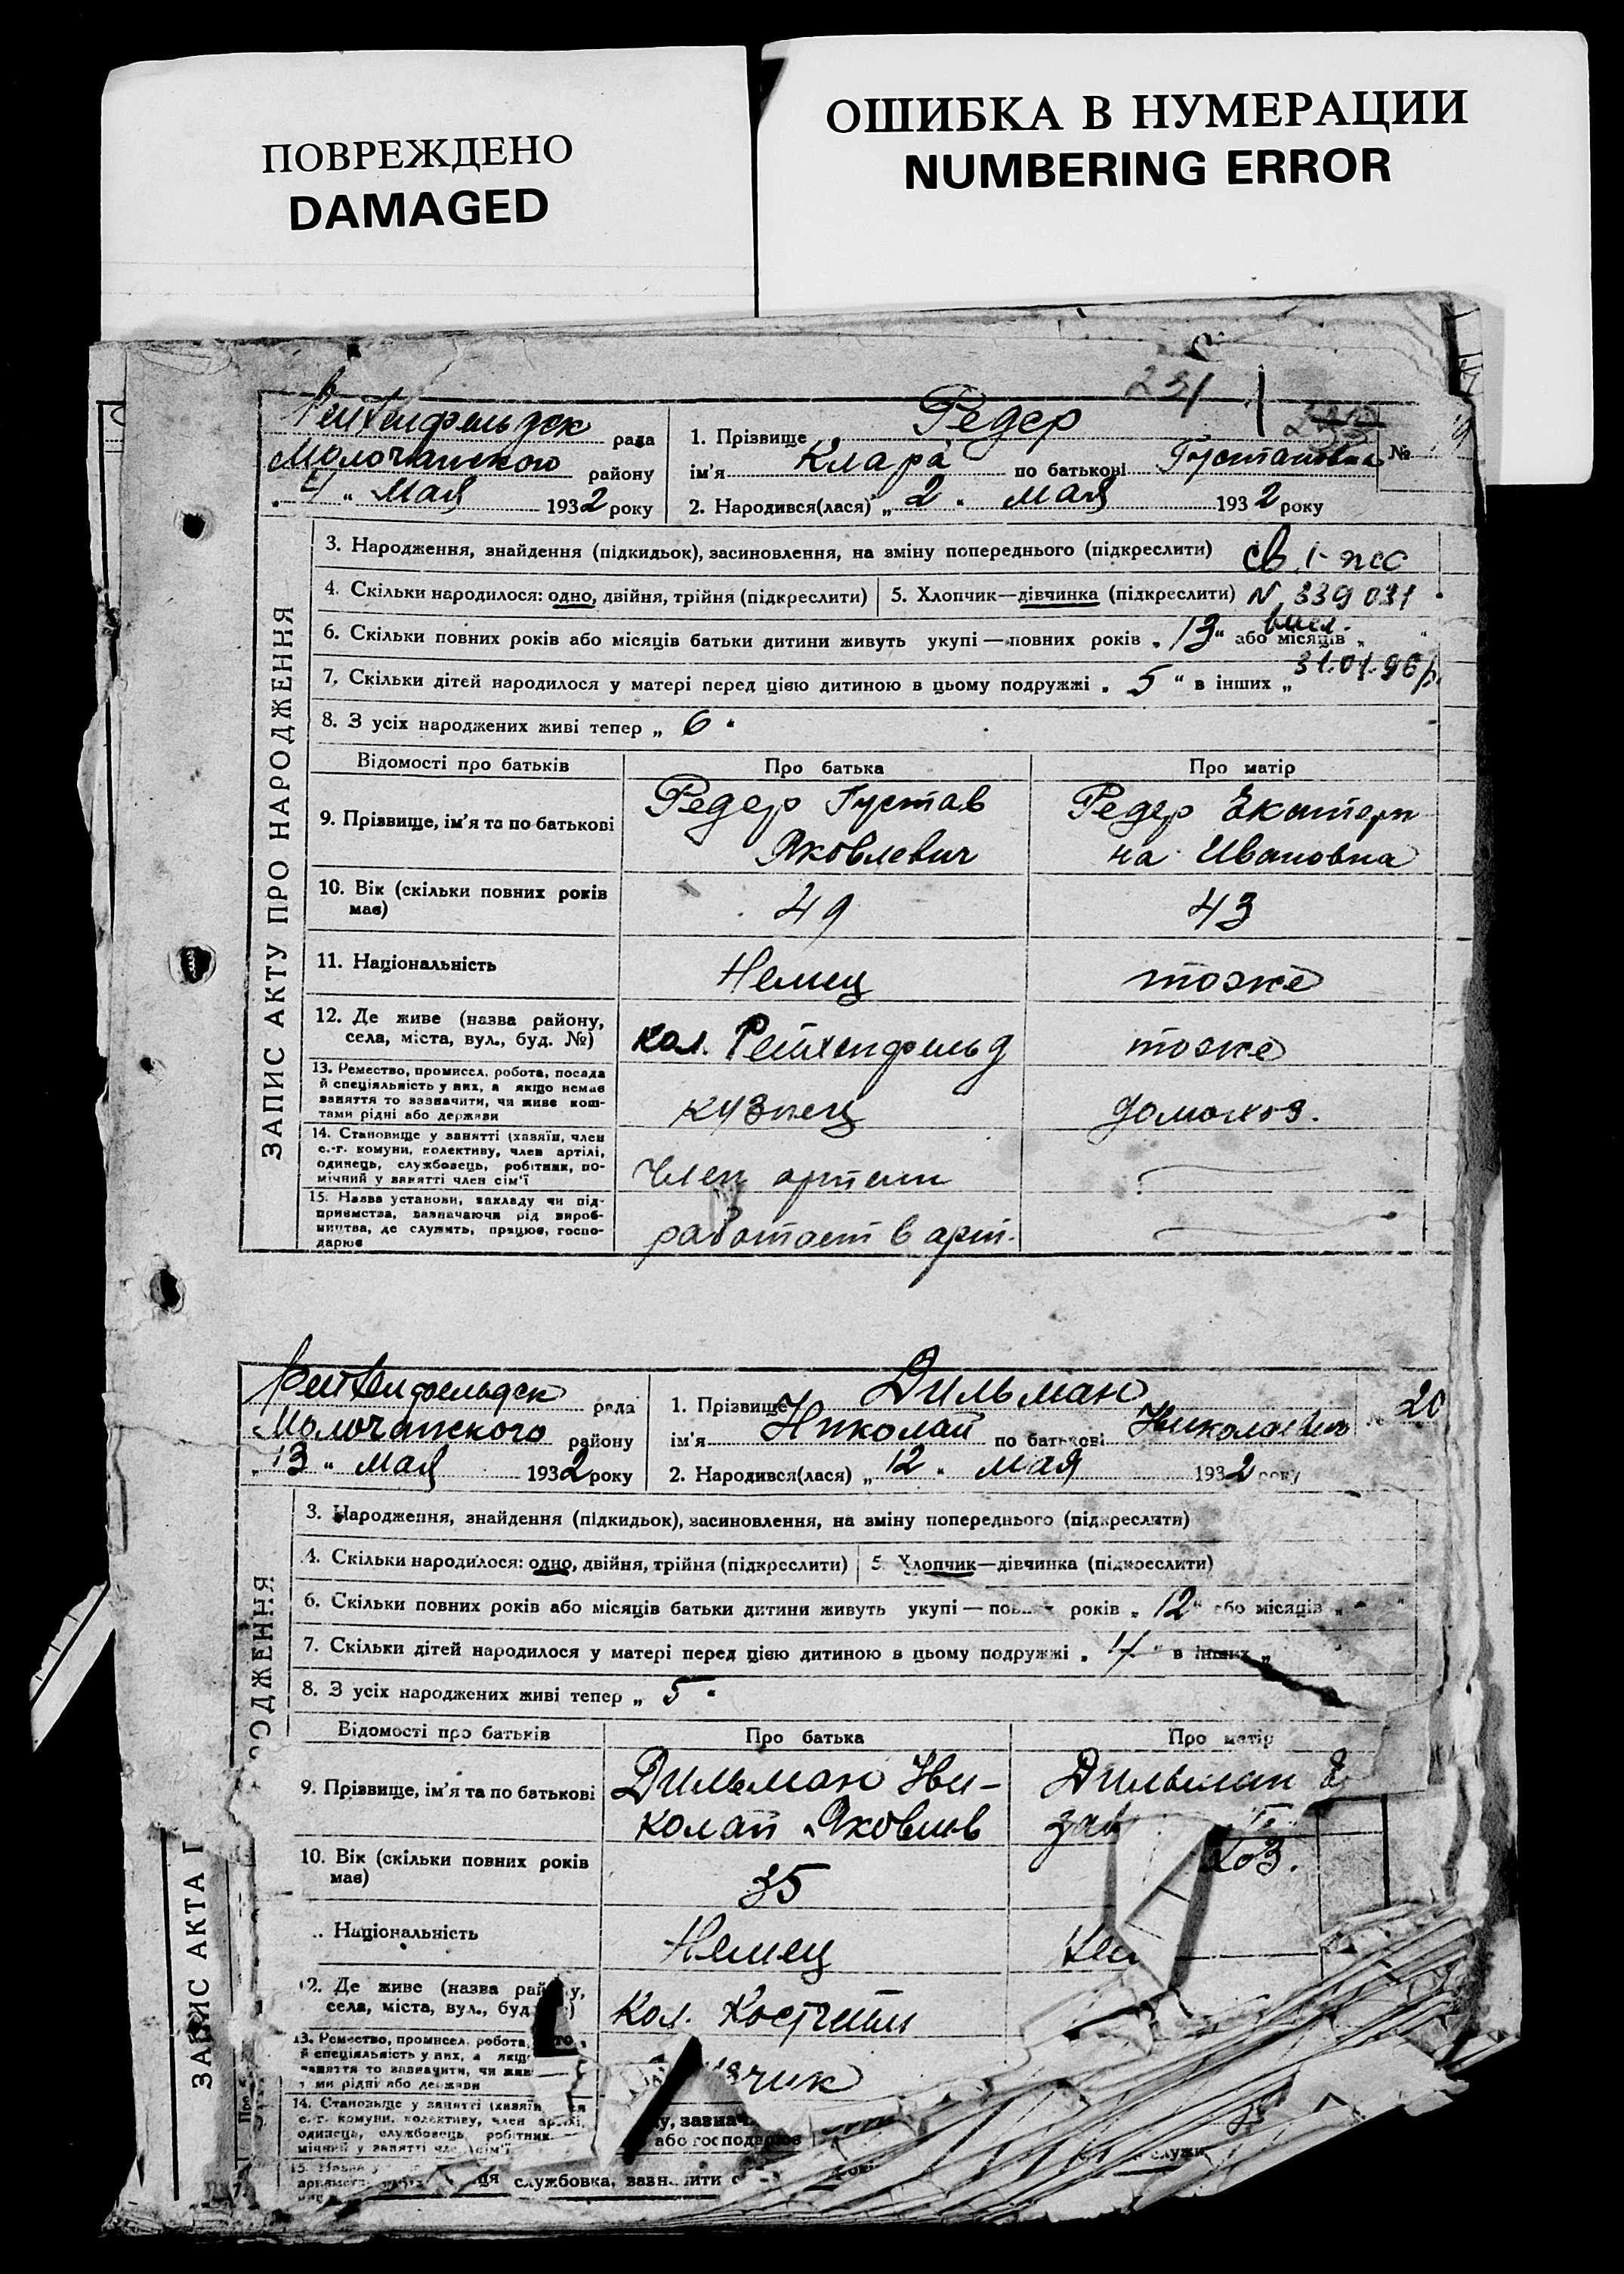 ПОВРЕЖДЕНО
DAMAGED
ОШИБКА В НУМЕРАЦИИ
NUMBERING ERROR
231
Рейхенфельдск рада
Молочанского району
" 4 " Мая 1932 року
1. Прізвище Редер
ім'я Клара по батькові Густавовна
№
2. Народився(лася) „ 2 " мая 1932 року
ЗАПИС АКТУ ПРО НАРОДЖЕННЯ
3. Народження, знайдення (підкидьок), засиновлення, на зміну попереднього (підкреслити)
св. 1-
4. Скільки народилося: одно, двійня, трійня (підкреслити) 5. Хлопчик—дівчинка (підкреслити) N 339031
6. Скільки повних років або місяців батьки дитини живуть укупі — повних років „ 13 " або місяців „ "
31.01.96р.
7. Скільки дітей народилося у матері перед цією дитиною в цьому подружжі „ 5 " в інших „
8. З усіх народжених живі тепер „ 6 "
Відомості про батьків Про батька Про матір
9. Прізвище, ім'я та по батькові
Редер Густав
Яковлевич
Редер Екатери
на Ивановна
10. Вік (скільки повних років
має)
49
43
11. Національність Немец тоже
12. Де живе (назва району,
села, міста, вул., буд. №)
кол. Рейхенфельд
тоже
13. Ремество, промисел, робота, посада
й спеціяльність у них, а якщо немає
заняття то зазначити, чи живе кош-
тами рідні або держави
кузнец
домохоз.
14. Становище у занятті (хазяїн, член
с.-г. комуни, колективу, член артілі,
одинець, службовець, робітник, по-
мічний у занятті член сім'ї
Член артели
15. Назва установи, закладу чи під-
приємства, зазначаючи рід вироб-
ництва, де служить, працює, госпо-
дарює
работает в арт.
Рейхенфельдск рада
Молочанского району
„ 13 " мая 1932 року
1. Прізвище Дильман
ім'я Николай по батькові Николаевич
№ 20
2. Народився(лася) „ 12 " мая 1932 року
ОДЖЕННЯ
3. Народження, знайдення (підкидьок), засиновлення, на зміну попереднього (підкреслити)
4. Скільки народилося: одно, двійня, трійня (підкреслити) 5. Хлопчик—дівчинка (підкреслити)
6. Скільки повних років або місяців батьки дитини живуть укупі — років „ 12 " або місяців „ "
7. Скільки дітей народилося у матері перед цією дитиною в цьому подружжі „ 4 " в інших „
8. З усіх народжених живі тепер „ 5 "
Відомості про батьків Про батька Про матір
9. Прізвище, ім'я та по батькові
Дильман Ни-
колай Яковлев
Дильман
хоз.
10. Вік (скільки повних років
має)
35
Національність Немец
12. Де живе (назва
села, міста, вул., буд
Кол.
13. Ремество, промисел, робота,
й спеціяльність у них, а якщо
заняття то зазначити, чи жив
ми рідні або держави
чик
14. Становище у занятті (хазяїн
с.-г. комуни, колективу, член артілі,
одинець, службовець, робітник
мічний у занятті
або господарює
службовка,
ЗАПИС АКТА